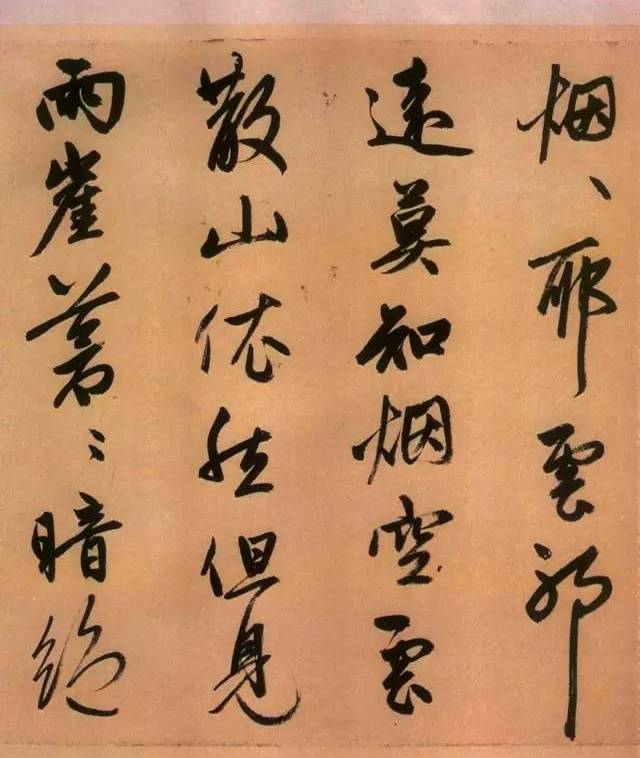 烟、耶雲耶
遠莫知烟空雲
散山依然但見
兩崖蒼〻暗絕